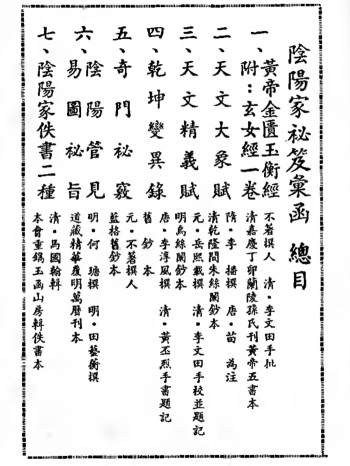 陰陽家祕笈彙函 總目
一、黃帝金匱玉衡經
附：玄女經一卷
不著撰人 清·李文田手批
清嘉慶丁卯蘭陵孫氏刊黃帝五書本
二、天文大象賦
隋·李播撰 唐·苗為注
清乾隆間朱絲闌鈔本
三、天文精義賦
元·岳熙載撰 清·李文田手校並題記
明烏絲闌鈔本
四、乾坤變異錄
唐·李淳風撰 清·黃丕烈手書題記
舊鈔本
五、奇門祕竅
元·不著撰人
藍格舊鈔本
六、陰陽管見
易圖祕旨
明·何瑭撰 明·田藝衡撰
道藏精華覆明萬曆刊本
七、陰陽家佚書二種
清·馬國翰輯
本會重鐫玉函山房輯佚書本